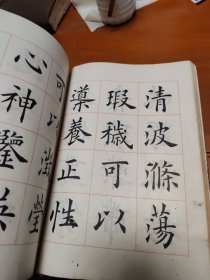 清波滌蕩
瑕穢可以
導養正性
可以澂瑩
心神鑒